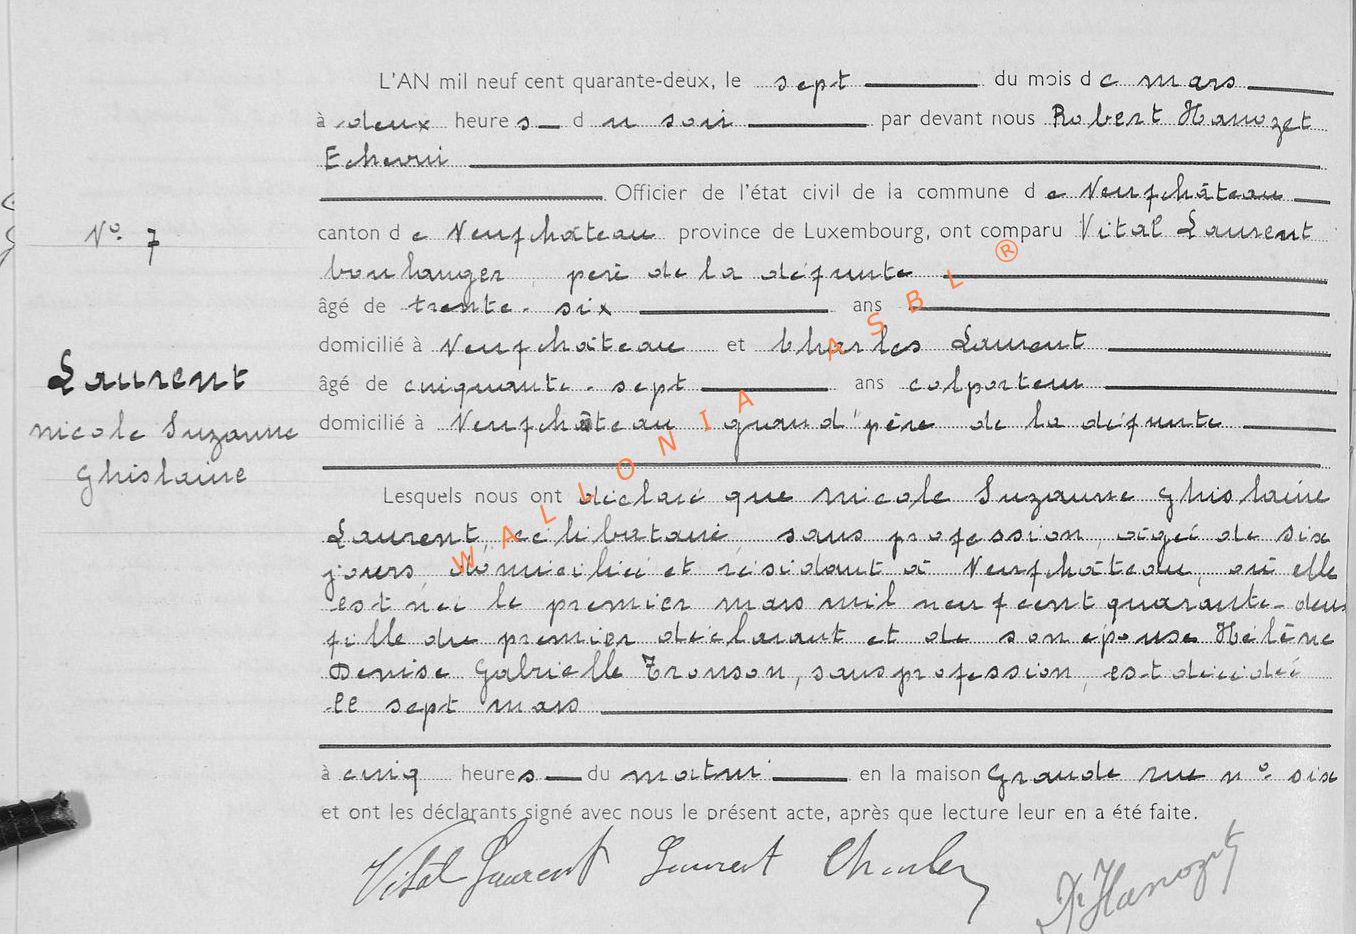 L'AN mil neuf cent quarante-deux, le sept du mois de mars
à deux heures du soir par devant nous Robert Hanozet
Echevin
Officier de l'état civil de la commune de Neufchâteau
N° 7
canton de Neufchâteau province de Luxembourg, ont comparu Vital Laurent
boulanger, père de la défunte
âgé de trente-six ans
domicilié à Neufchâteau et Charles Laurent
Laurent
âgé de cinquante-sept ans colporteur
nicole Suzanne
domicilié à Neufchâteau grand'père de la défunte
Ghislaine
Lesquels nous ont déclaré que nicole Suzanne Ghislaine
Laurent, célibataire, sans profession, agée de six
jours, domiciliée et résidant à Neufchâteau, où elle
est née le premier mars mil neuf cent quarante-deux
fille du premier déclarant et de son épouse Hélène
Denise Gabrielle Tronson, sans profession, est décédée
le sept mars
à cinq heures du matin en la maison Grande rue n° six
et ont les déclarants signé avec nous le présent acte, après que lecture leur en a été faite.
Vital Laurent Laurent Charles
R. Hanozet
WALLONIA ASBL ®